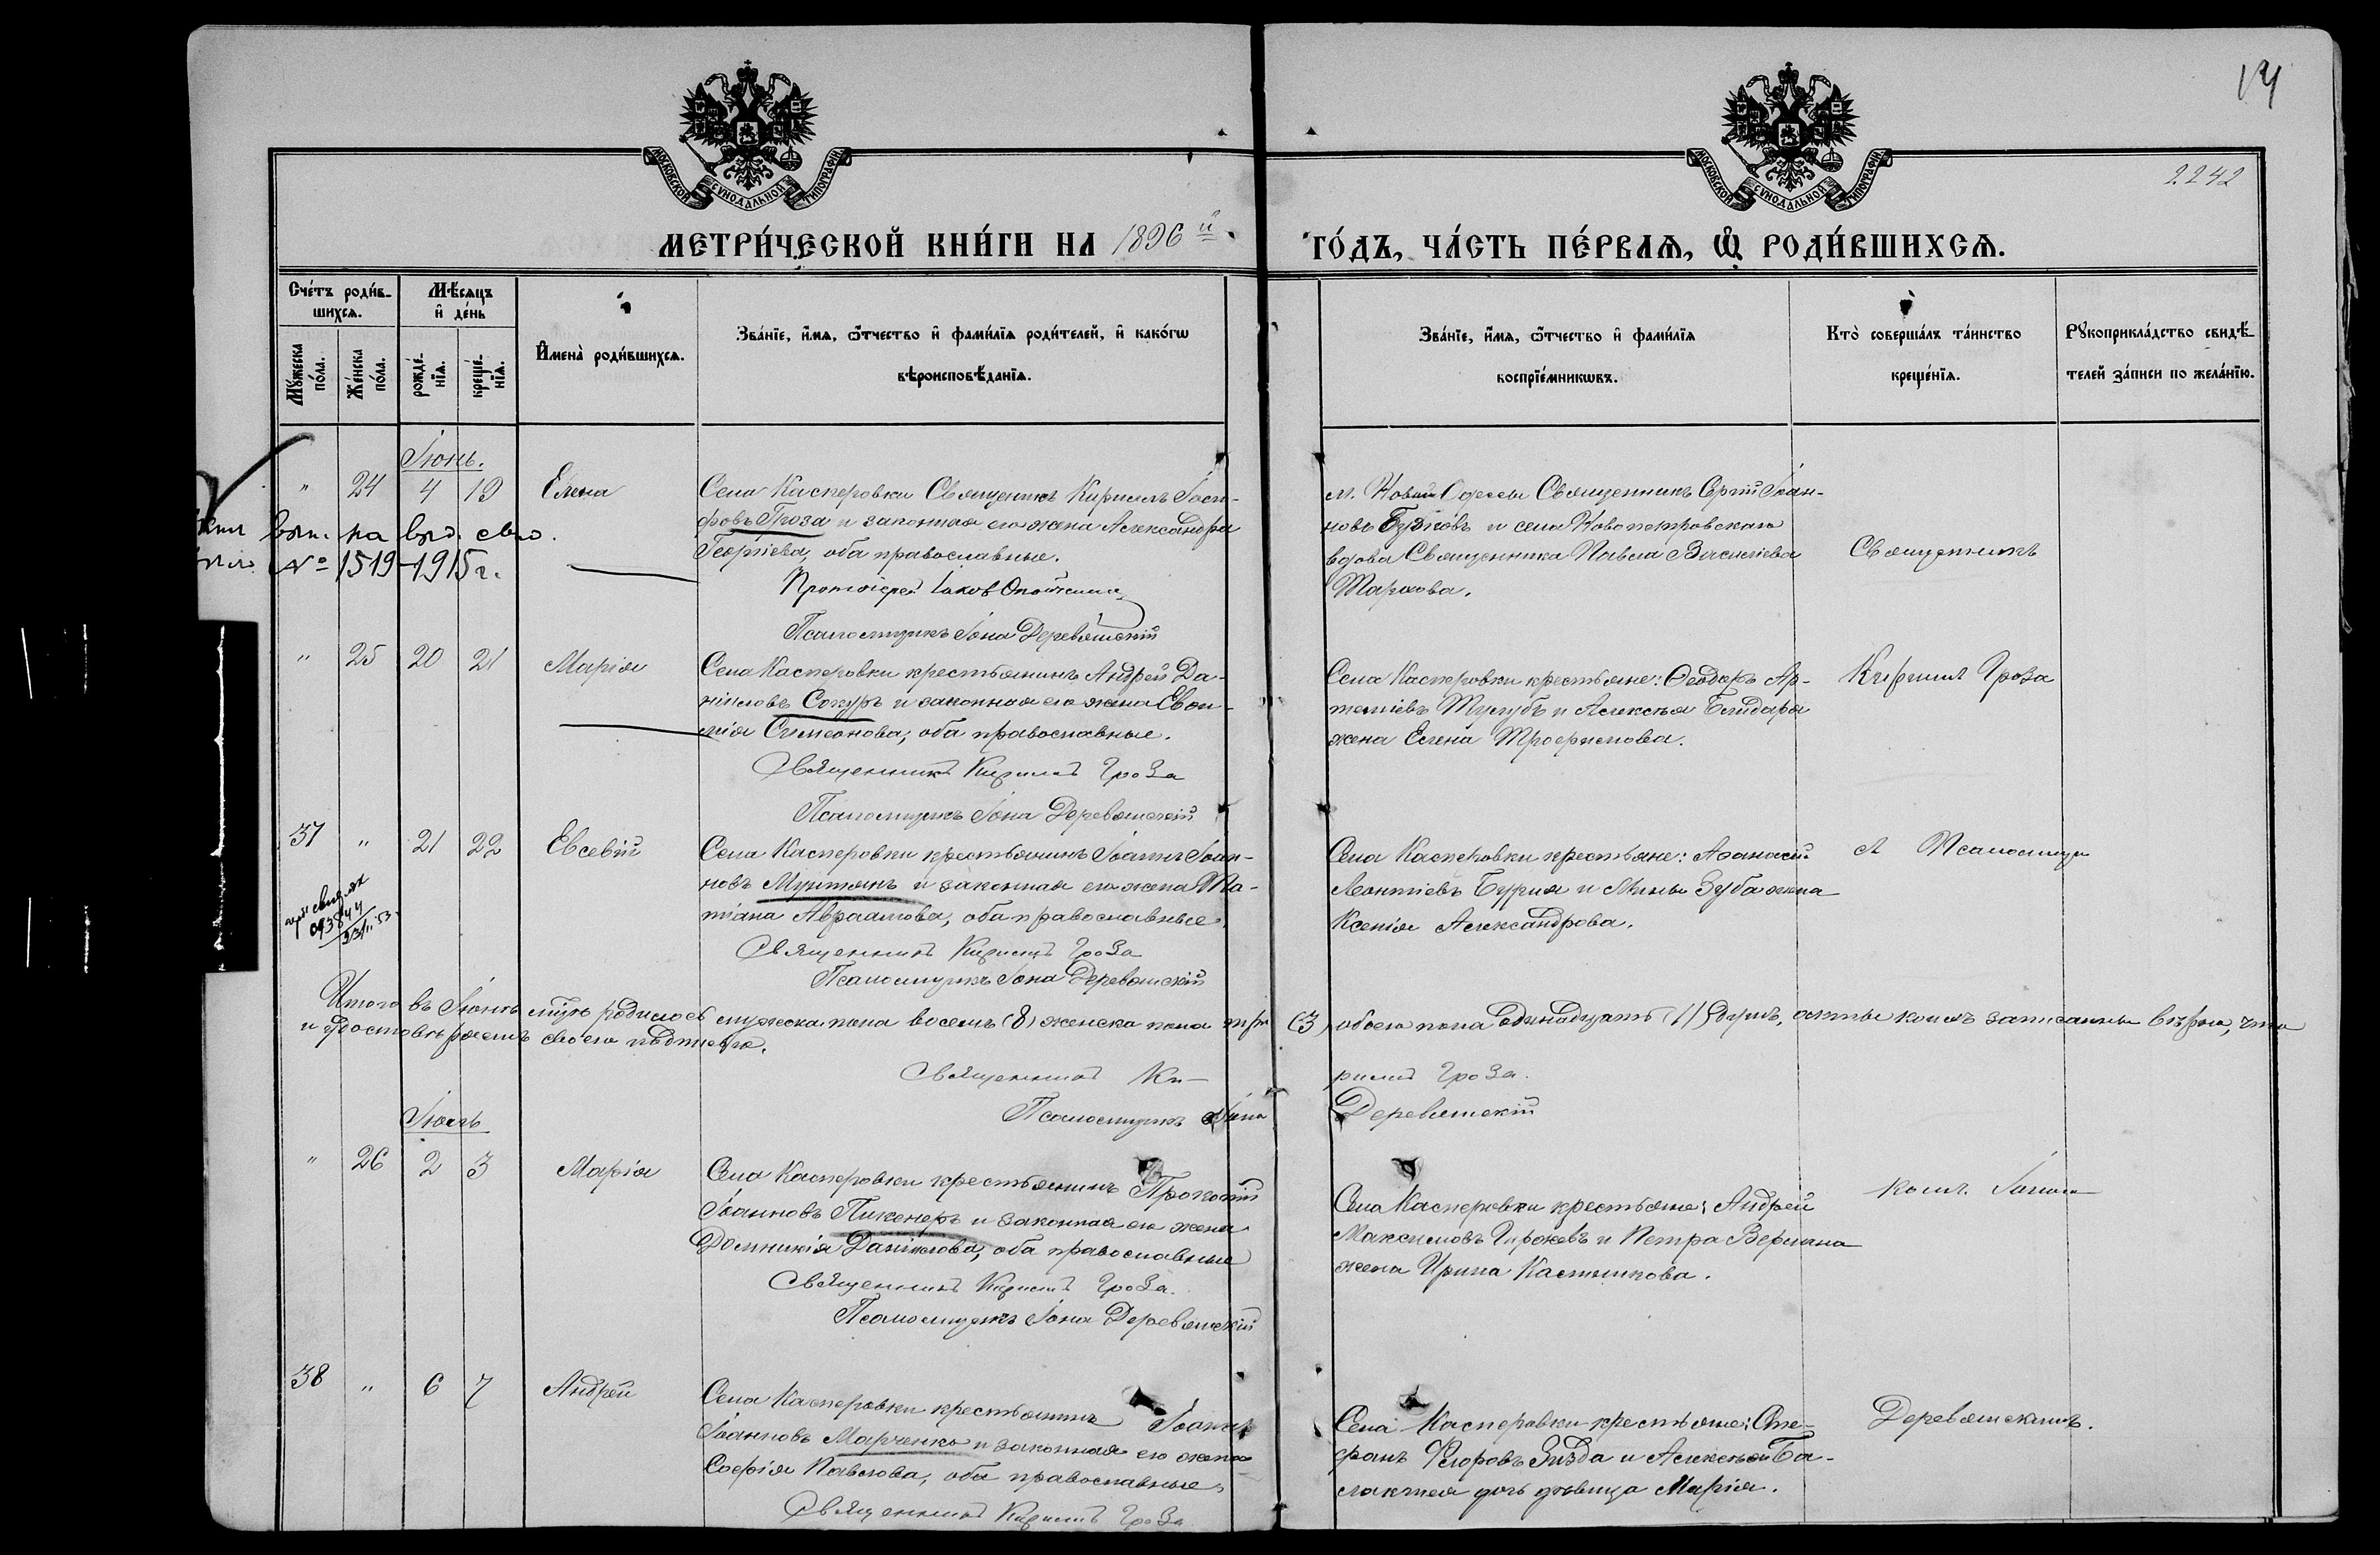 14
2242
МОСКОВСКОЙ СѴНОДАЛЬНОЙ ТИПОГРАФІИ
МОСКОВСКОЙ СѴНОДАЛЬНОЙ ТИПОГРАФІИ
МЕТРИ́ЧЕСКОЙ КНИ́ГИ НА 1896 й
ГО́ДЪ, ЧА́СТЬ ПЕ́РВАѦ, Ѿ РОДИ́ВШИХСѦ.
Сче́тъ роди́в-
шихсѧ.
Мѣ́сѧцъ
и҆ де́нь
Мꙋ́жеска по́ла.
Же́нска по́ла.
рожде́-
нїѧ.
креще́-
нїѧ.
И҆мена̀ роди́вшихсѧ.
Зва́нїе, и҆́мѧ, ѻ҆́тчество и҆ фами́лїѧ роди́телей, и҆ како́гѡ
вѣроисповѣ́данїѧ.
Зва́нїе, и҆́мѧ, ѻ҆́тчество и҆ фами́лїѧ
воспрїе́мникѡвъ.
Кто̀ соверша́лъ та́инство
креще́нїѧ.
Рꙋкоприкла́дство свидѣ́-
телей за́писи по жела́нїю.
Іюнь.
" 24 4 19 Елена
Села Касперовки Священникъ Кириллъ Іоси-
фовъ Гроза и законная его жена Александра
Георгіева, оба православные.
Протоіерей Іаковъ
Псаломщикъ Іона Деревянскій
м. Новой Одессы Священникъ Сергій Іоан-
новъ и села Новопетровскаго
вдова Священника Павла Василіева
Священникъ
вып. на выд. св-во.
№ 1519-1915 г.
" 25 20 21 Марія
Села Касперовки крестьянинъ Андрей Да-
ніиловъ Сокуръ и законная его жена Евѳи-
мія Симеонова, оба православные.
Священникъ Кириллъ Гроза
Псаломщикъ Іона Деревянскій
Села Касперовки крестьяне: Ѳеодоръ Ар-
теміевъ Тулубъ и Алексѣя Бандара
жена Елена Трофимова.
Кириллъ Гроза
37 " 21 22 Евсевій
Села Касперовки крестьянинъ Іоаннъ Іоан-
новъ Мунтянъ и законная его жена Та-
тіана Авраамова, оба православные.
Священникъ Кириллъ Гроза
Псаломщикъ Іона Деревянскій
Села Касперовки крестьяне: Аѳанасій
Леонтіевъ Бурля и Мины Зуба жена
Ксенія Александрова.
съ Псаломщи
Итого въ Іюнѣ мѣсяцѣ родилось мужеска пола восемь (8) женска пола три (3) обоего пола одинадцать (11) душъ, акты коихъ записаны вѣрно, что
и удостовѣряемъ своею подписью.
Священникъ Ки-
риллъ Гроза.
Псаломщикъ Іона
Деревянскій
Іюль
" 26 2 3 Марія
Села Касперовки крестьянинъ Прокопій
Іоанновъ Пикенеръ и законная его жена
Домникія Даніилова, оба православные
Священникъ Кириллъ Гроза.
Псаломщикъ Іона Деревянскій
Села Касперовки крестьяне: Андрей
Максимовъ и Петра Вермана
жена Ирина
комъ Іоною
38 " 6 7 Андрей
Села Касперовки крестьянинъ Іоаннъ
Іоанновъ Марченко и законная его жена
Софія Павлова, оба православные.
Священникъ Кириллъ Гроза
Села Касперовки крестьяне: Сте-
фанъ и Алексѣя Ба-
лакчея дочь дѣвица Марія.
Деревянскимъ.